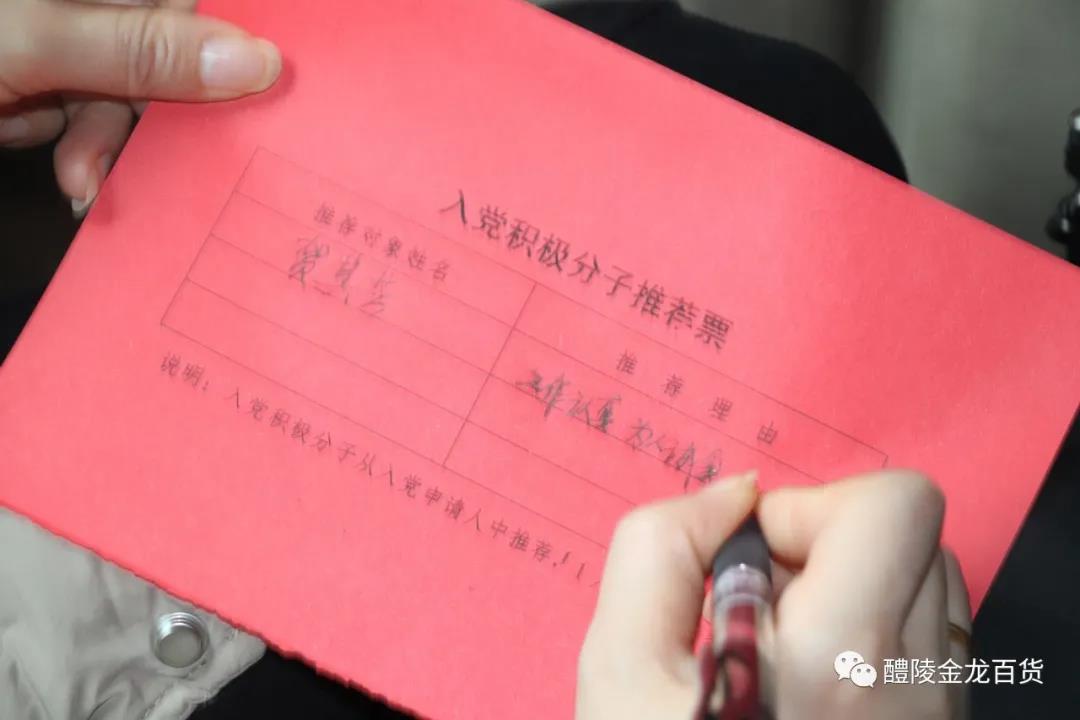 入党积极分子推荐票
推荐对象姓名
推荐理由
工作认真 为人
说明：入党积极分子从入党申请人中推荐
醴陵金龙百货